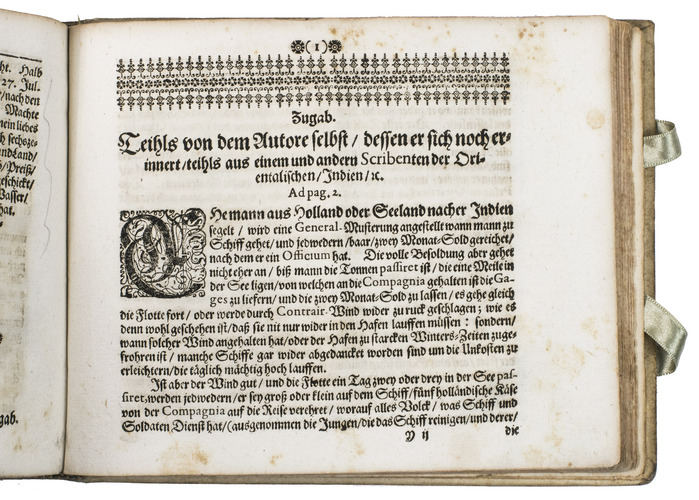 ht. Halb
27. Jul.
/nach den
Machte
nein liebes
h sechsze-
undLand/
/Preiß/
geschickt/
Wasser/
hat.
gab.
(1)
Zugab.
Teihls von dem Autore selbst / dessen er sich noch er-
innert / teihls aus einem und andern Scribenten der Ori-
entalischen / Indien / ꝛc.
Ad pag. 2.
EHe mann aus Holland oder Seeland nacher Indien
segelt / wird eine General-Musterung angestellt wann mann zu
Schiff gehet / und jedwedern / baar / zwey Monat-Sold gereichet /
nach dem er ein Officium hat. Die volle Besoldung aber gehet
nicht eher an / biß mann die Tonnen passiret ist / die eine Meile in
der See ligen / von welchen an die Compagnia gehalten ist die Ga-
ges zu liefern / und die zwey Monat-Sold zu lassen / es gehe gleich
die Flotte fort / oder werde durch Contrair-Wind wider zu ruck geschlagen ; wie es
denn wohl geschehen ist / daß sie nit nur wider in den Hafen lauffen müssen : sondern /
wann solcher Wind angehalten hat / oder der Hafen zu starcken Winters-Zeiten zuge-
frohren ist / manche Schiffe gar wider abgedancket worden sind um die Unkosten zu
erleichtern / die täglich mächtig hoch lauffen.
Ist aber der Wind gut / und die Flotte ein Tag zwey oder drey in der See pas-
siret, werden jedwedern / er sey groß oder klein auf dem Schiff / fünf holländische Käse
von der Compagnia auf die Reise verehret / worauf alles Volck / was Schiff und
Soldaten Dienst hat / (ausgenommen die Jungen / die das Schiff reinigen / und derer /
Y ij
die